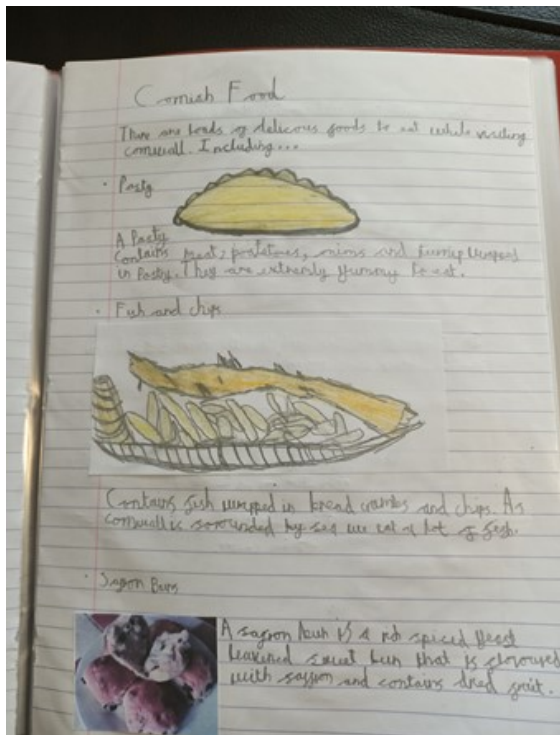 Cornish Food
There are loads of delicous foods to eat while visiting
cornwall. Including...
• Pasty
A Pasty
contains meat, potatoes, and turnip wrapped
in Pasty. They are extremly yummy to eat.
• Fish and chips
Contains fish wrapped in bread crumbs and chips. As
cornwall is sorounded by sea we eat a lot of fish.
• Saffron Buns
A saffron bun is a rich spiced yeast
leavened sweet bun that is flavoured
with saffron and contains dried fruit.